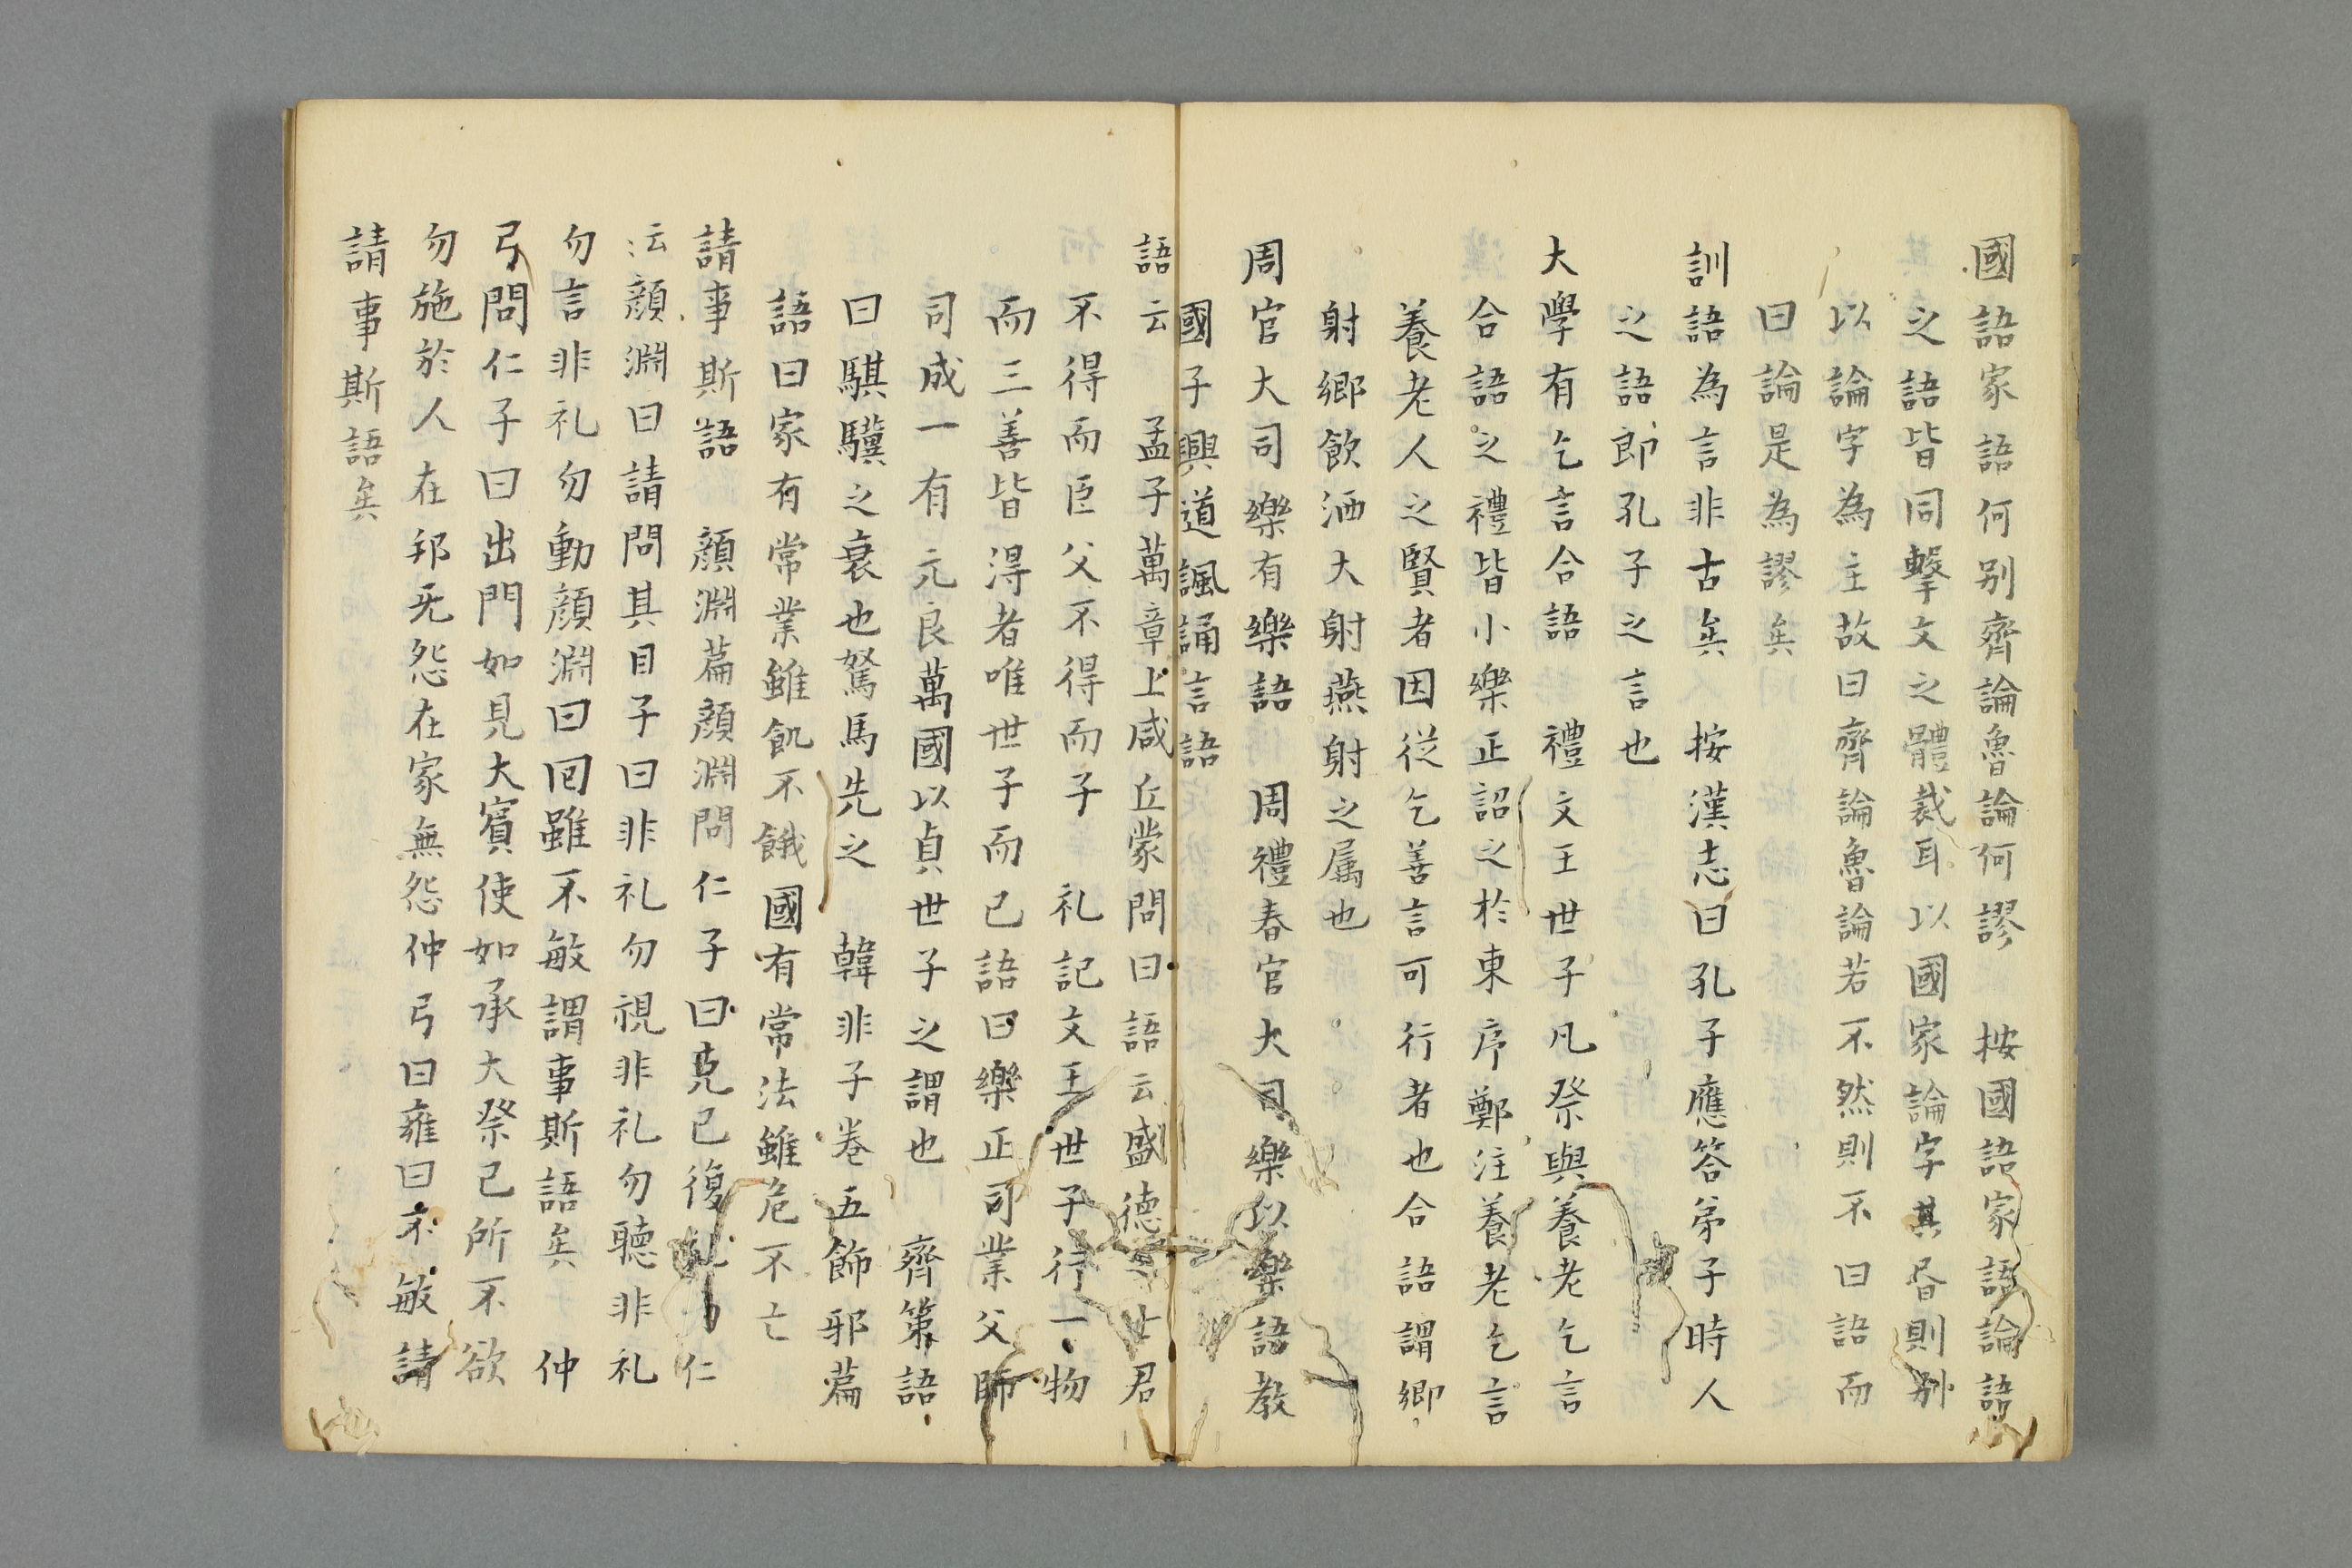 國語家語何别齊論魯論何謬 按國語家語論語
之語皆同撃文之體裁耳以國家論字其㫺則别
以論字為主故曰齊論魯論若不然則不曰語而
曰論是為謬矣
訓語為言非古矣 按漢志曰孔子應答弟子時人
之語即孔子之言也
大學有乞言合語 禮文王世子凡祭與養老乞言
合語之禮皆小樂正詔之於東序鄭注養老乞言
養老人之賢者因從乞善言可行者也合語謂鄉
射鄉飲酒大射燕射之属也
周官大司樂有樂語 周禮春官大司樂以樂語教
國子興道諷誦言語
語云 孟子萬章上咸丘蒙問曰語云盛德之士君
不得而臣父不得而子 礼記文王世子行一物
而三善皆得者唯世子而已語曰樂正司業父師
司成一有元良萬國以貞世子之謂也 齊策語
曰騏驥之衰也駑馬先之 韓非子巻五飾邪篇
語曰家有常業雖飢不餓國有常法雖危不亡
請事斯語 顔淵篇顔淵問仁子曰克已復礼為仁
云顔淵曰請問其目子曰非礼勿視非礼勿聽非礼
勿言非礼勿動顔淵曰囘雖不敏謂事斯語矣 仲
弓問仁子曰出門如見大賓使如承大祭已所不欲
勿施於人在邦无怨在家無怨仲弓曰雍曰不敏請
請事斯語矣